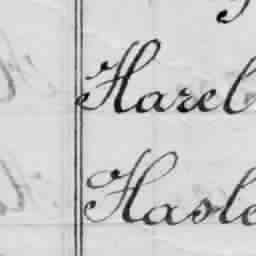 Harel
Hasle